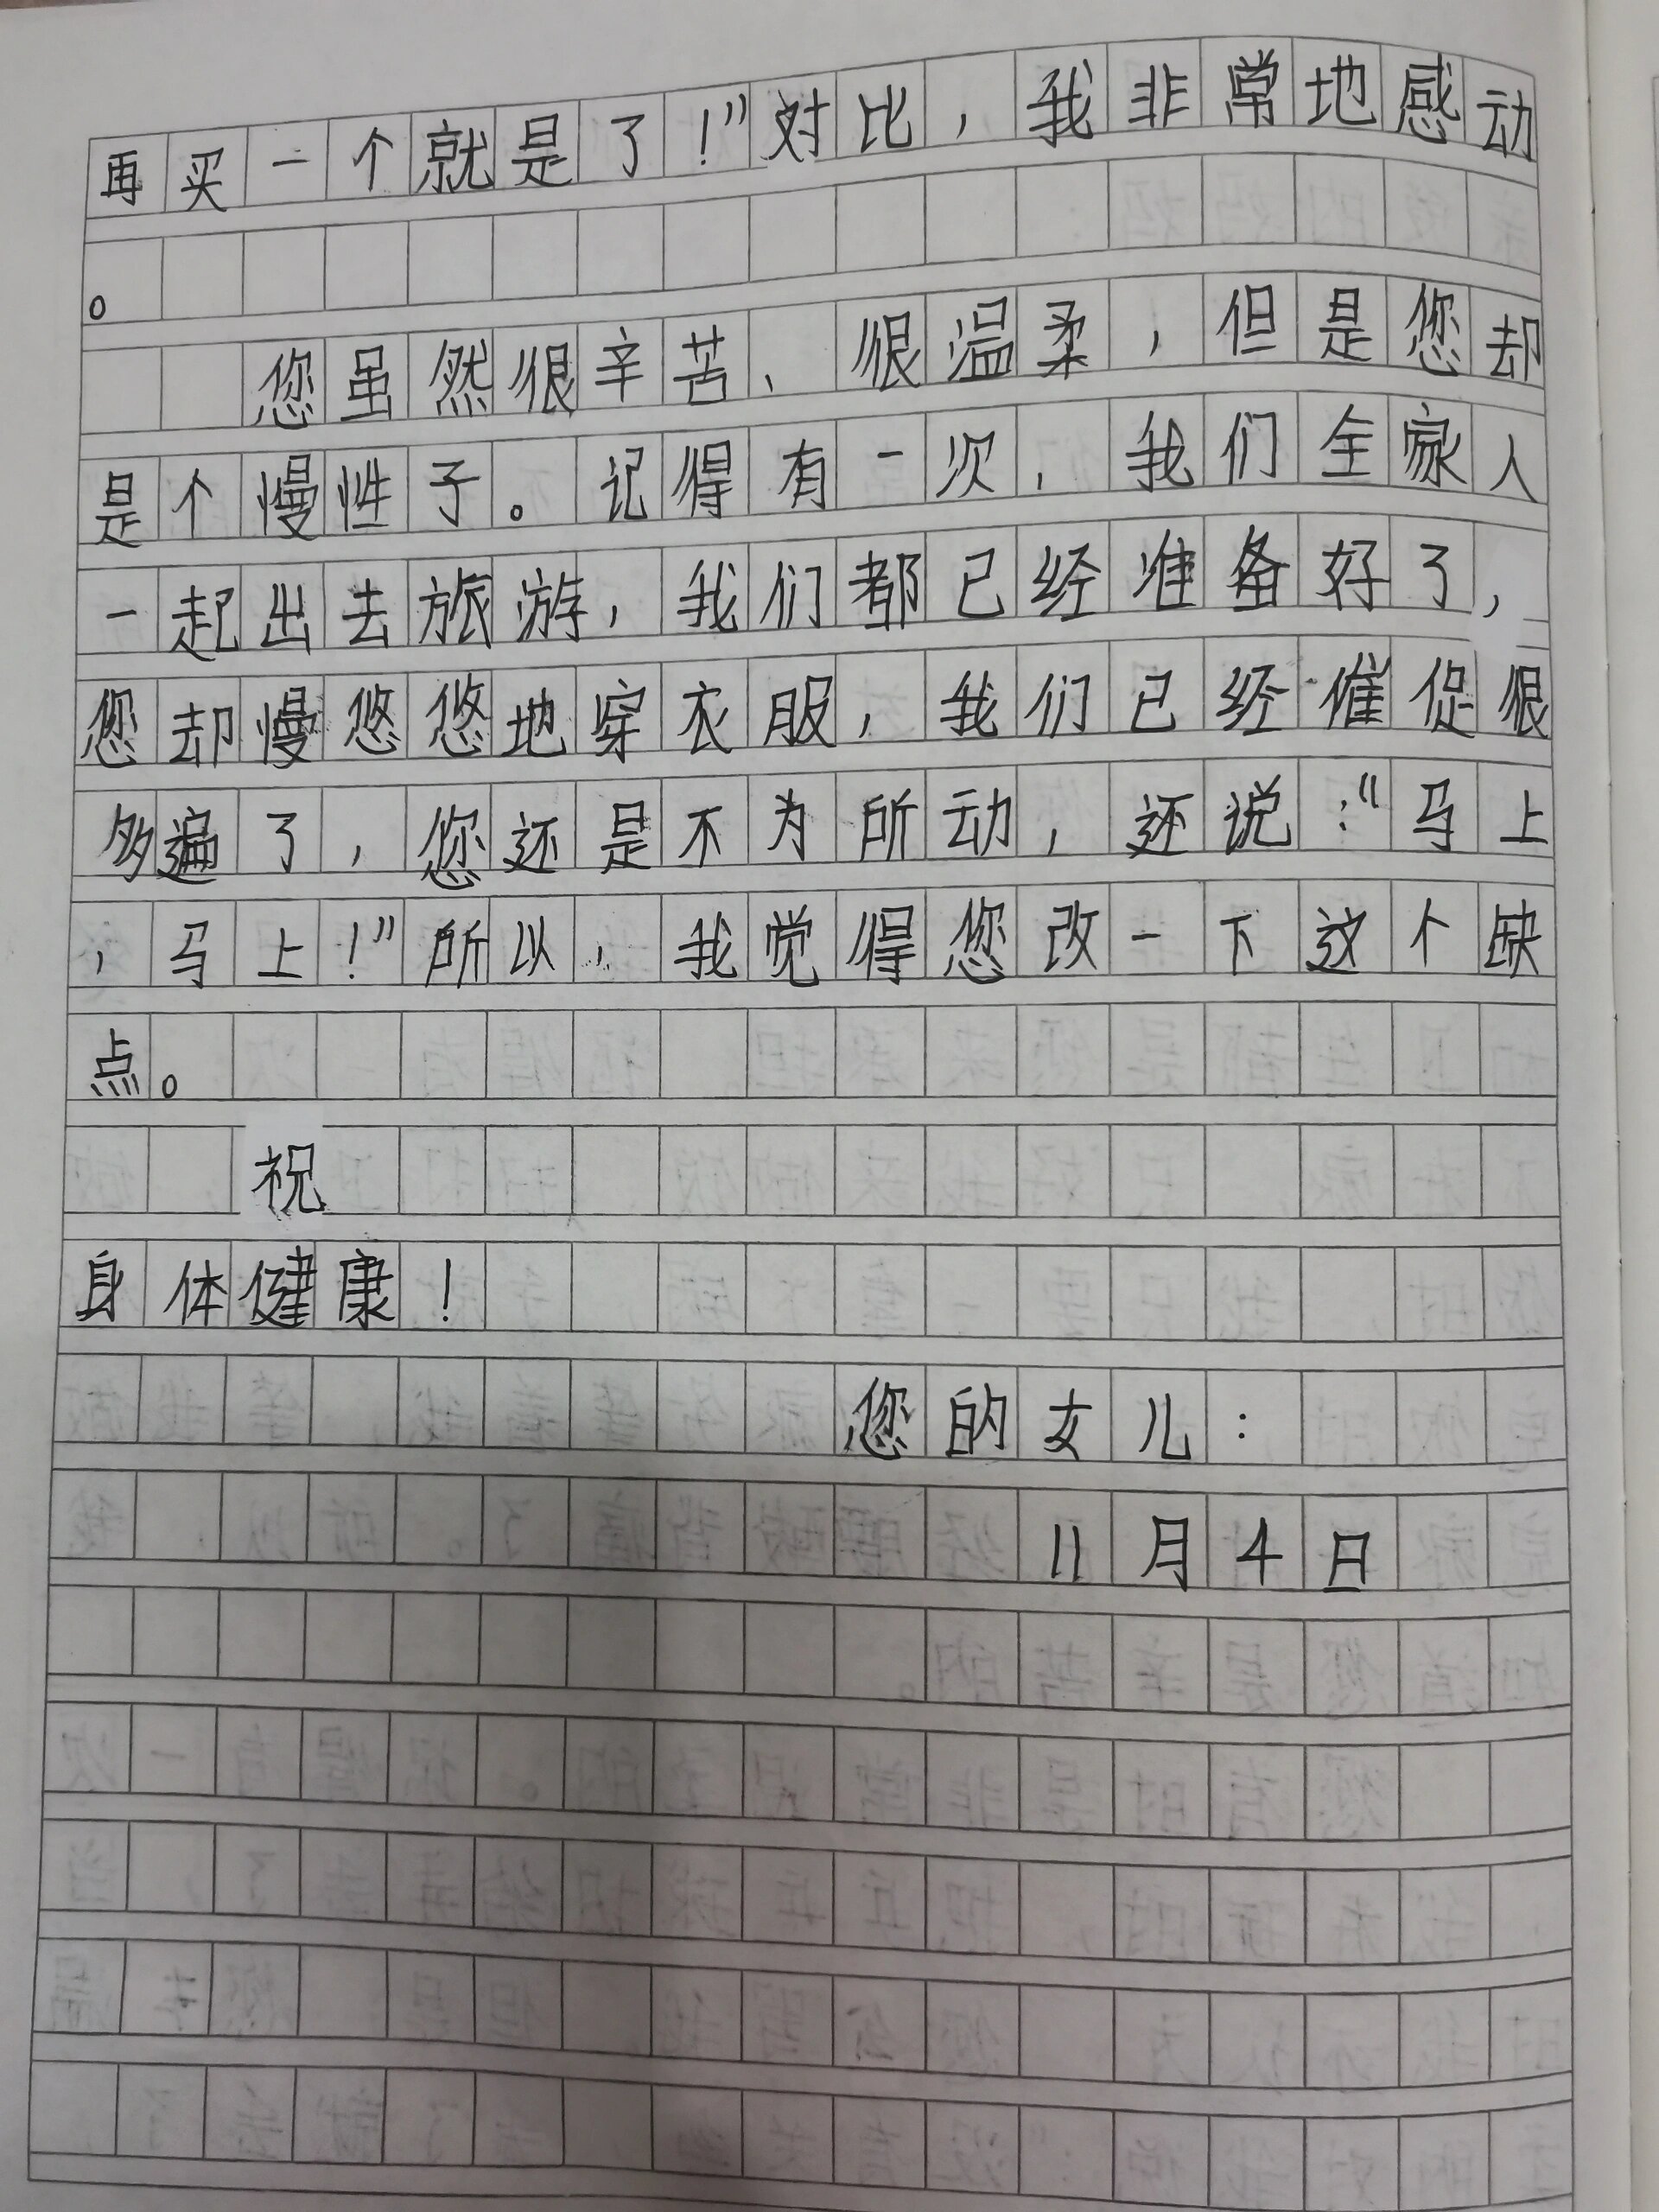 再买一个就是了！”对比，我非常地感动
。
您虽然很辛苦、很温柔，但是您却
是个慢性子。记得有一次，我们全家人
一起出去旅游，我们都已经准备好了，
您却慢悠悠地穿衣服，我们已经催促很
多遍了，您还是不为所动，还说：“马上
，马上！”所以，我觉得您改一下这个缺
点。
祝
身体健康！
您的女儿：
11月4日